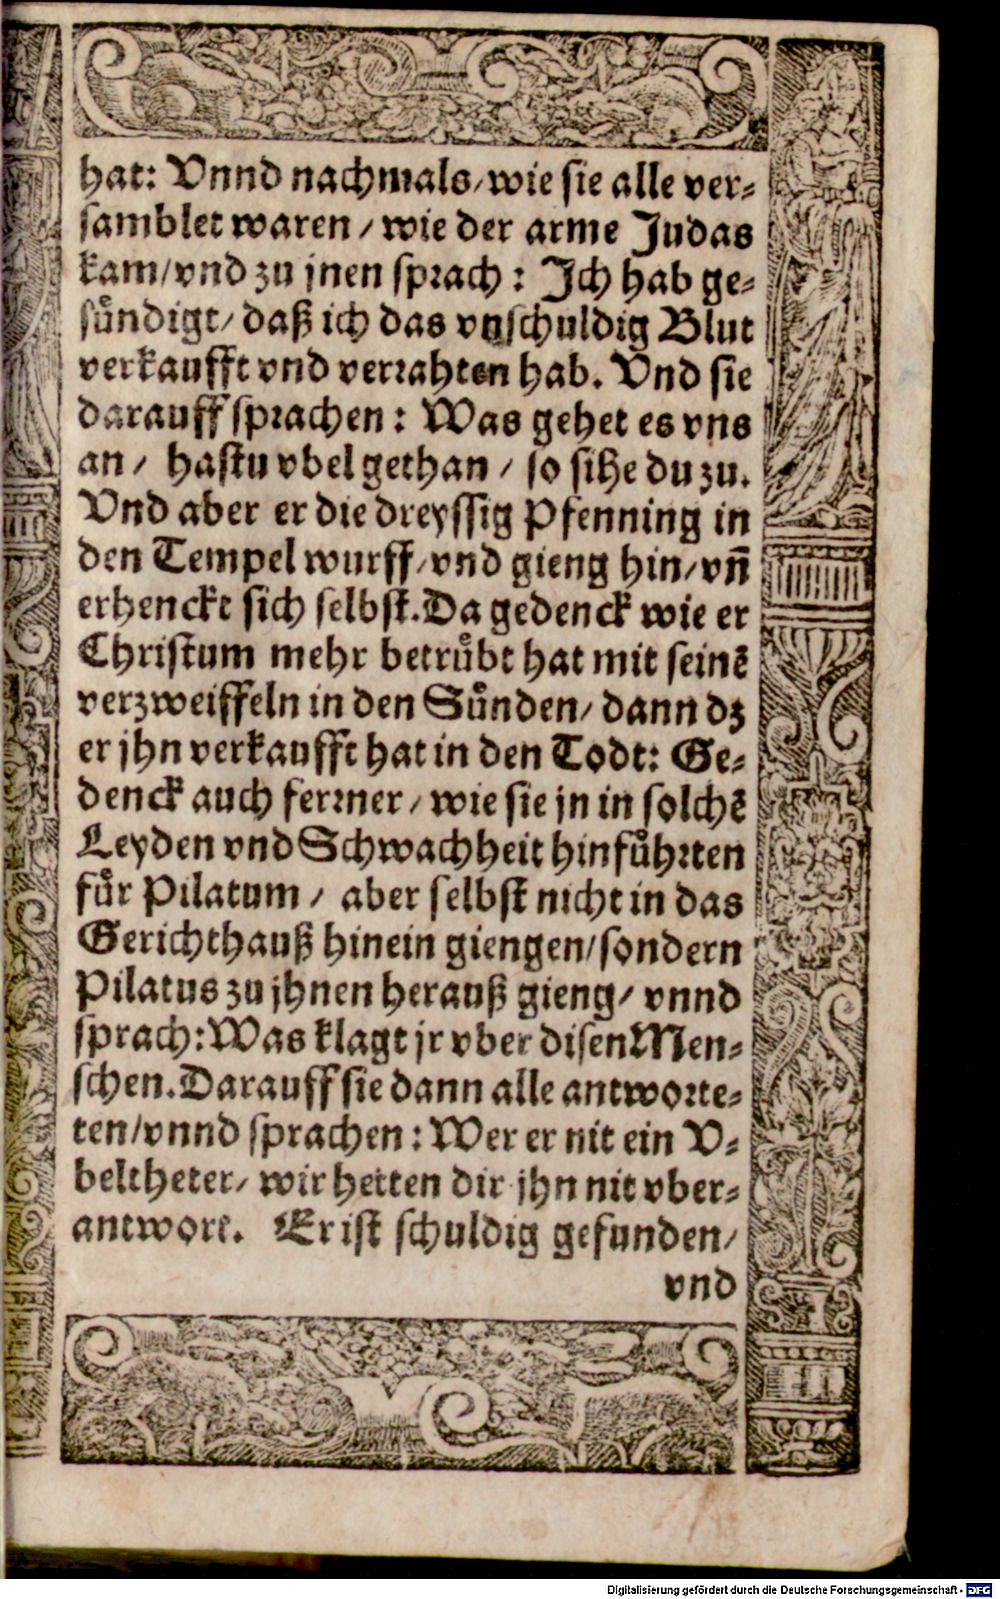 hat: Vnnd nachmals/wie sie alle ver⸗
samblet waren / wie der arme Judas
kam/vnd zu jnen sprach: Ich hab ge⸗
suͤndigt/ daß ich das vnschuldig Blut
verkaufft vnd verrahten hab. Vnd sie
darauff sprachen: Was gehet es vns
an / hastu vbel gethan / so sihe du zu.
Vnd aber er die dreyssig Pfenning in
den Tempel wurff/vnd gieng hin/vn̄
erhenckt sich selbst. Da gedenck wie er
Christum mehr betruͤbt hat mit seinē
verzweiffeln in den Suͤnden/ dann dz
er jhn verkaufft hat in den Todt: Ge⸗
denck auch ferrner / wie sie jn in solchē
Leyden vnd Schwachheit hinfuͤhrten
fuͤr Pilatum / aber selbst nicht in das
Gerichthauß hinein giengen/sondern
Pilatus zu jhnen herauß gieng/ vnnd
sprach: Was klagt jr vber disen Men⸗
schen. Darauff sie dann alle antworte⸗
ten/vnnd sprachen: Wer er nit ein V⸗
beltheter/ wir hetten dir jhn nit vber⸗
antwort. Er ist schuldig gefunden/
vnd
Digitalisierung gefördert durch die Deutsche Forschungsgemeinschaft - DFG